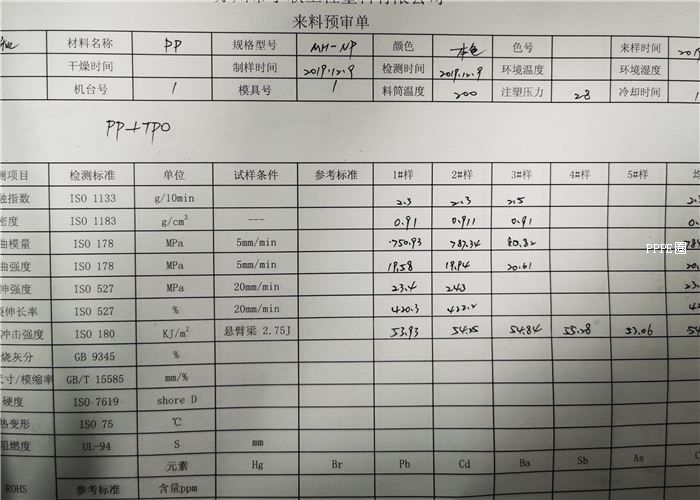 来料预审单
材料名称 PP 规格型号 MH-NP 颜色 本色 色号 来样时间 2019
干燥时间 制样时间 2019.12.9 检测时间 2019.12.9 环境温度 环境湿度
机台号 1 模具号 1 料筒温度 200 注塑压力 28 冷却时间 1
PP+TPO
测项目 检测标准 单位 试样条件 参考标准 1#样 2#样 3#样 4#样 5#样 均
融指数 ISO 1133 g/10min 2.3 2.3 2.5 2.3
密度 ISO 1183 g/cm³ --- 0.91 0.911 0.91 0.
曲模量 ISO 178 MPa 5mm/min 750.93 787.34 784
PPPE圈
曲强度 ISO 178 MPa 5mm/min 19.58 19.94 20.61 20.
伸强度 ISO 527 MPa 20mm/min 23.4 24.3 23.
裂伸长率 ISO 527 % 20mm/min 420.3 422.2 42
冲击强度 ISO 180 KJ/m² 悬臂梁 2.75J 53.93 54.25 54.84 55.28 53.06 54
烧灰分 GB 9345 %
尺寸/模缩率 GB/T 15585 mm/%
硬度 ISO·7619 shore D
热变形 ISO 75 ℃
阻燃度 UL-94 S mm
元素 Hg Br Pb Cd Ba Sb As C
ROHS 参考标准 含量ppm